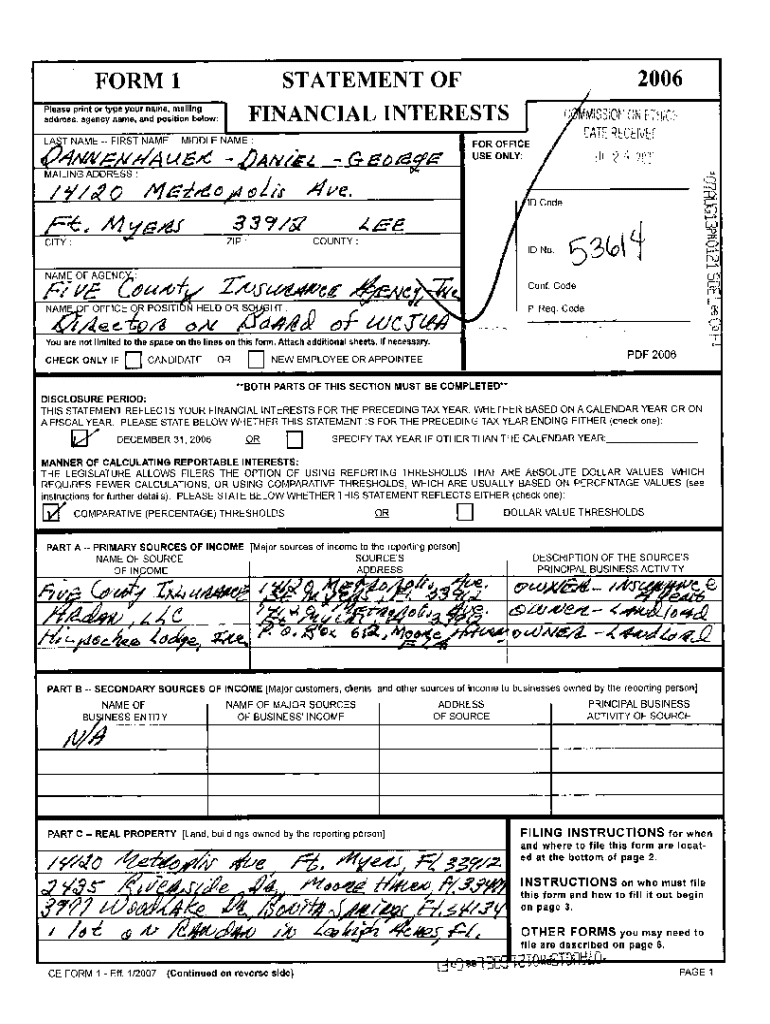 FORM 1 STATEMENT OF 2006
Please print or type your name, mailing address, agency name, and position below:
FINANCIAL INTERESTS
COMMISSION ON ETHICS
DATE RECEIVED
LAST NAME -- FIRST NAME MIDDLE NAME :
DANNENHAUER - DANIEL - GEORGE
FOR OFFICE USE ONLY:
MAILING ADDRESS :
14120 Metropolis Ave.
ID Code
Ft. Myers 33912 LEE
CITY : ZIP : COUNTY :
ID No. 53614
NAME OF AGENCY :
Five County Insurance Agency, Inc
Conf. Code
NAME OF OFFICE OR POSITION HELD OR SOUGHT :
Director on Board of WCJUA
P. Req. Code
You are not limited to the space on the lines on this form. Attach additional sheets, if necessary.
CHECK ONLY IF CANDIDATE OR NEW EMPLOYEE OR APPOINTEE
PDF 2006
**BOTH PARTS OF THIS SECTION MUST BE COMPLETED**
DISCLOSURE PERIOD:
THIS STATEMENT REFLECTS YOUR FINANCIAL INTERESTS FOR THE PRECEDING TAX YEAR, WHETHER BASED ON A CALENDAR YEAR OR ON
A FISCAL YEAR. PLEASE STATE BELOW WHETHER THIS STATEMENT IS FOR THE PRECEDING TAX YEAR ENDING EITHER (check one):
DECEMBER 31, 2006 OR SPECIFY TAX YEAR IF OTHER THAN THE CALENDAR YEAR:
MANNER OF CALCULATING REPORTABLE INTERESTS:
THE LEGISLATURE ALLOWS FILERS THE OPTION OF USING REPORTING THRESHOLDS THAT ARE ABSOLUTE DOLLAR VALUES, WHICH
REQUIRES FEWER CALCULATIONS, OR USING COMPARATIVE THRESHOLDS, WHICH ARE USUALLY BASED ON PERCENTAGE VALUES (see
instructions for further details). PLEASE STATE BELOW WHETHER THIS STATEMENT REFLECTS EITHER (check one):
COMPARATIVE (PERCENTAGE) THRESHOLDS OR DOLLAR VALUE THRESHOLDS
PART A -- PRIMARY SOURCES OF INCOME [Major sources of income to the reporting person]
NAME OF SOURCE OF INCOME SOURCE'S ADDRESS DESCRIPTION OF THE SOURCE'S PRINCIPAL BUSINESS ACTIVITY
Five County Insurance 14120 Metropolis Ave. Ft Myers Fl. 33912 OWNER - INSURANCE Agent
Ardan, LLC 14120 Metropolis Ave. Ft Myers Fl 33912 OWNER - Landlord
P.O. Box 612, Moore Haven Fla OWNER - Landlord
PART B -- SECONDARY SOURCES OF INCOME [Major customers, clients, and other sources of income to businesses owned by the reporting person]
NAME OF BUSINESS ENTITY NAME OF MAJOR SOURCES OF BUSINESS' INCOME ADDRESS OF SOURCE PRINCIPAL BUSINESS ACTIVITY OF SOURCE
N/A
PART C -- REAL PROPERTY [Land, buildings owned by the reporting person]
14120 Metroplis Ave, Ft. Myers, Fl 33912
2435 Riverside Dr, Moore Haven, Fl. 33471
3977 Woodlake Dr, Bonita Springs, Fl. 34134
1 lot on in Lehigh Acres, Fl.
FILING INSTRUCTIONS for when
and where to file this form are locat-
ed at the bottom of page 2.
INSTRUCTIONS on who must file
this form and how to fill it out begin
on page 3.
OTHER FORMS you may need to
file are described on page 6.
CE FORM 1 - Eff. 1/2007 (Continued on reverse side) PAGE 1